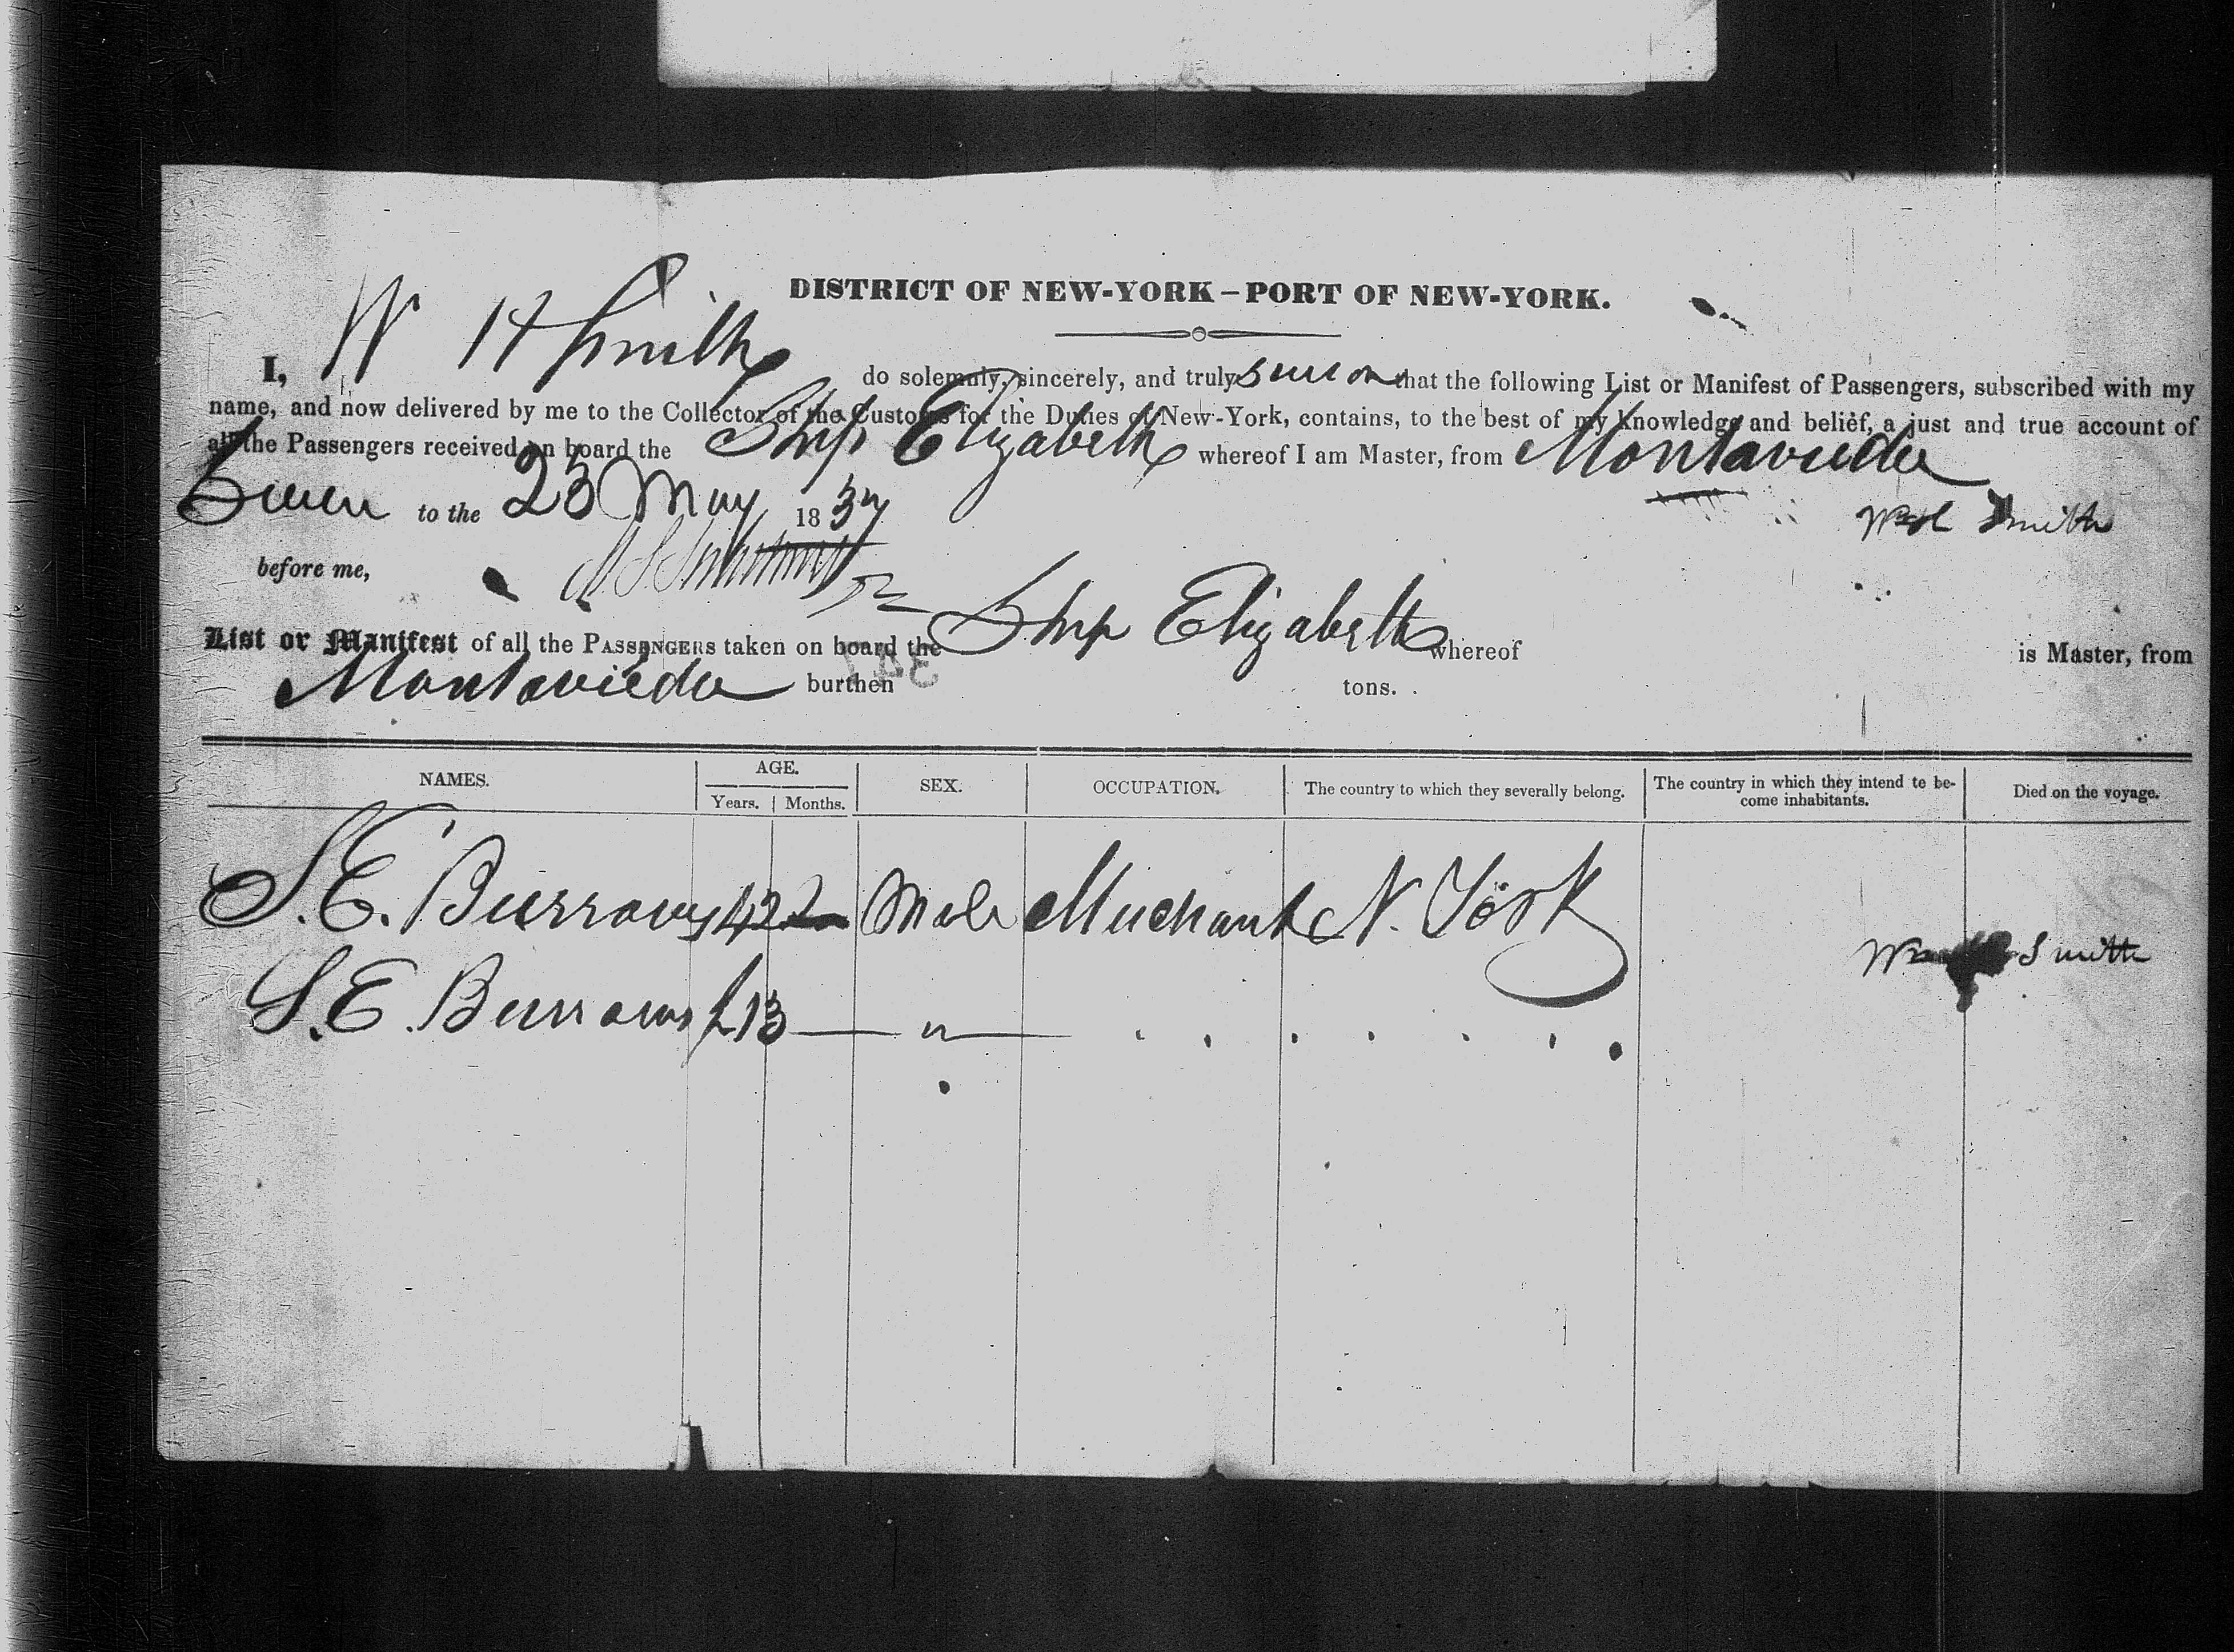 DISTRICT OF NEW-YORK – PORT OF NEW-YORK.
I, W H Smith do solemnly, sincerely, and truly swear that the following List or Manifest of Passengers, subscribed with my
name, and now delivered by me to the Collector of the Customs for the Duties of New-York, contains, to the best of my knowledge and belief, a just and true account of
all the Passengers received on board the Ship Elizabeth whereof I am Master, from Montavideo
Sworn to the 23 May 1837
Wm H Smith
before me,
List or Manifest of all the PASSENGERS taken on board the Ship Elizabeth whereof is Master, from
Montavideo burthen tons.
347
NAMES. AGE. Years. Months. SEX. OCCUPATION. The country to which they severally belong. The country in which they intend to be-come inhabitants. Died on the voyage.
S. E. Burrows 42 Male Merchant N. York
Wm Smith
S. E. Burrows Jr 13 — " —